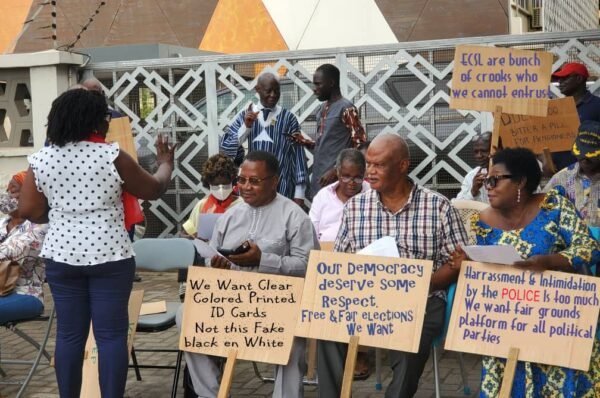 ECSL ARE BUNCH
OF CROOKS WHO
WE CANNOT ENTRUST
BITTER A PILL
We Want Clear
Colored Printed
ID Cards
Not this Fake
black en White
Our Democracy
deserve Some
Respect.
Free & Fair elections
We Want
Harassment & Intimidation
by the POLICE Is too much
We want fair grounds
platform for all political
Parties